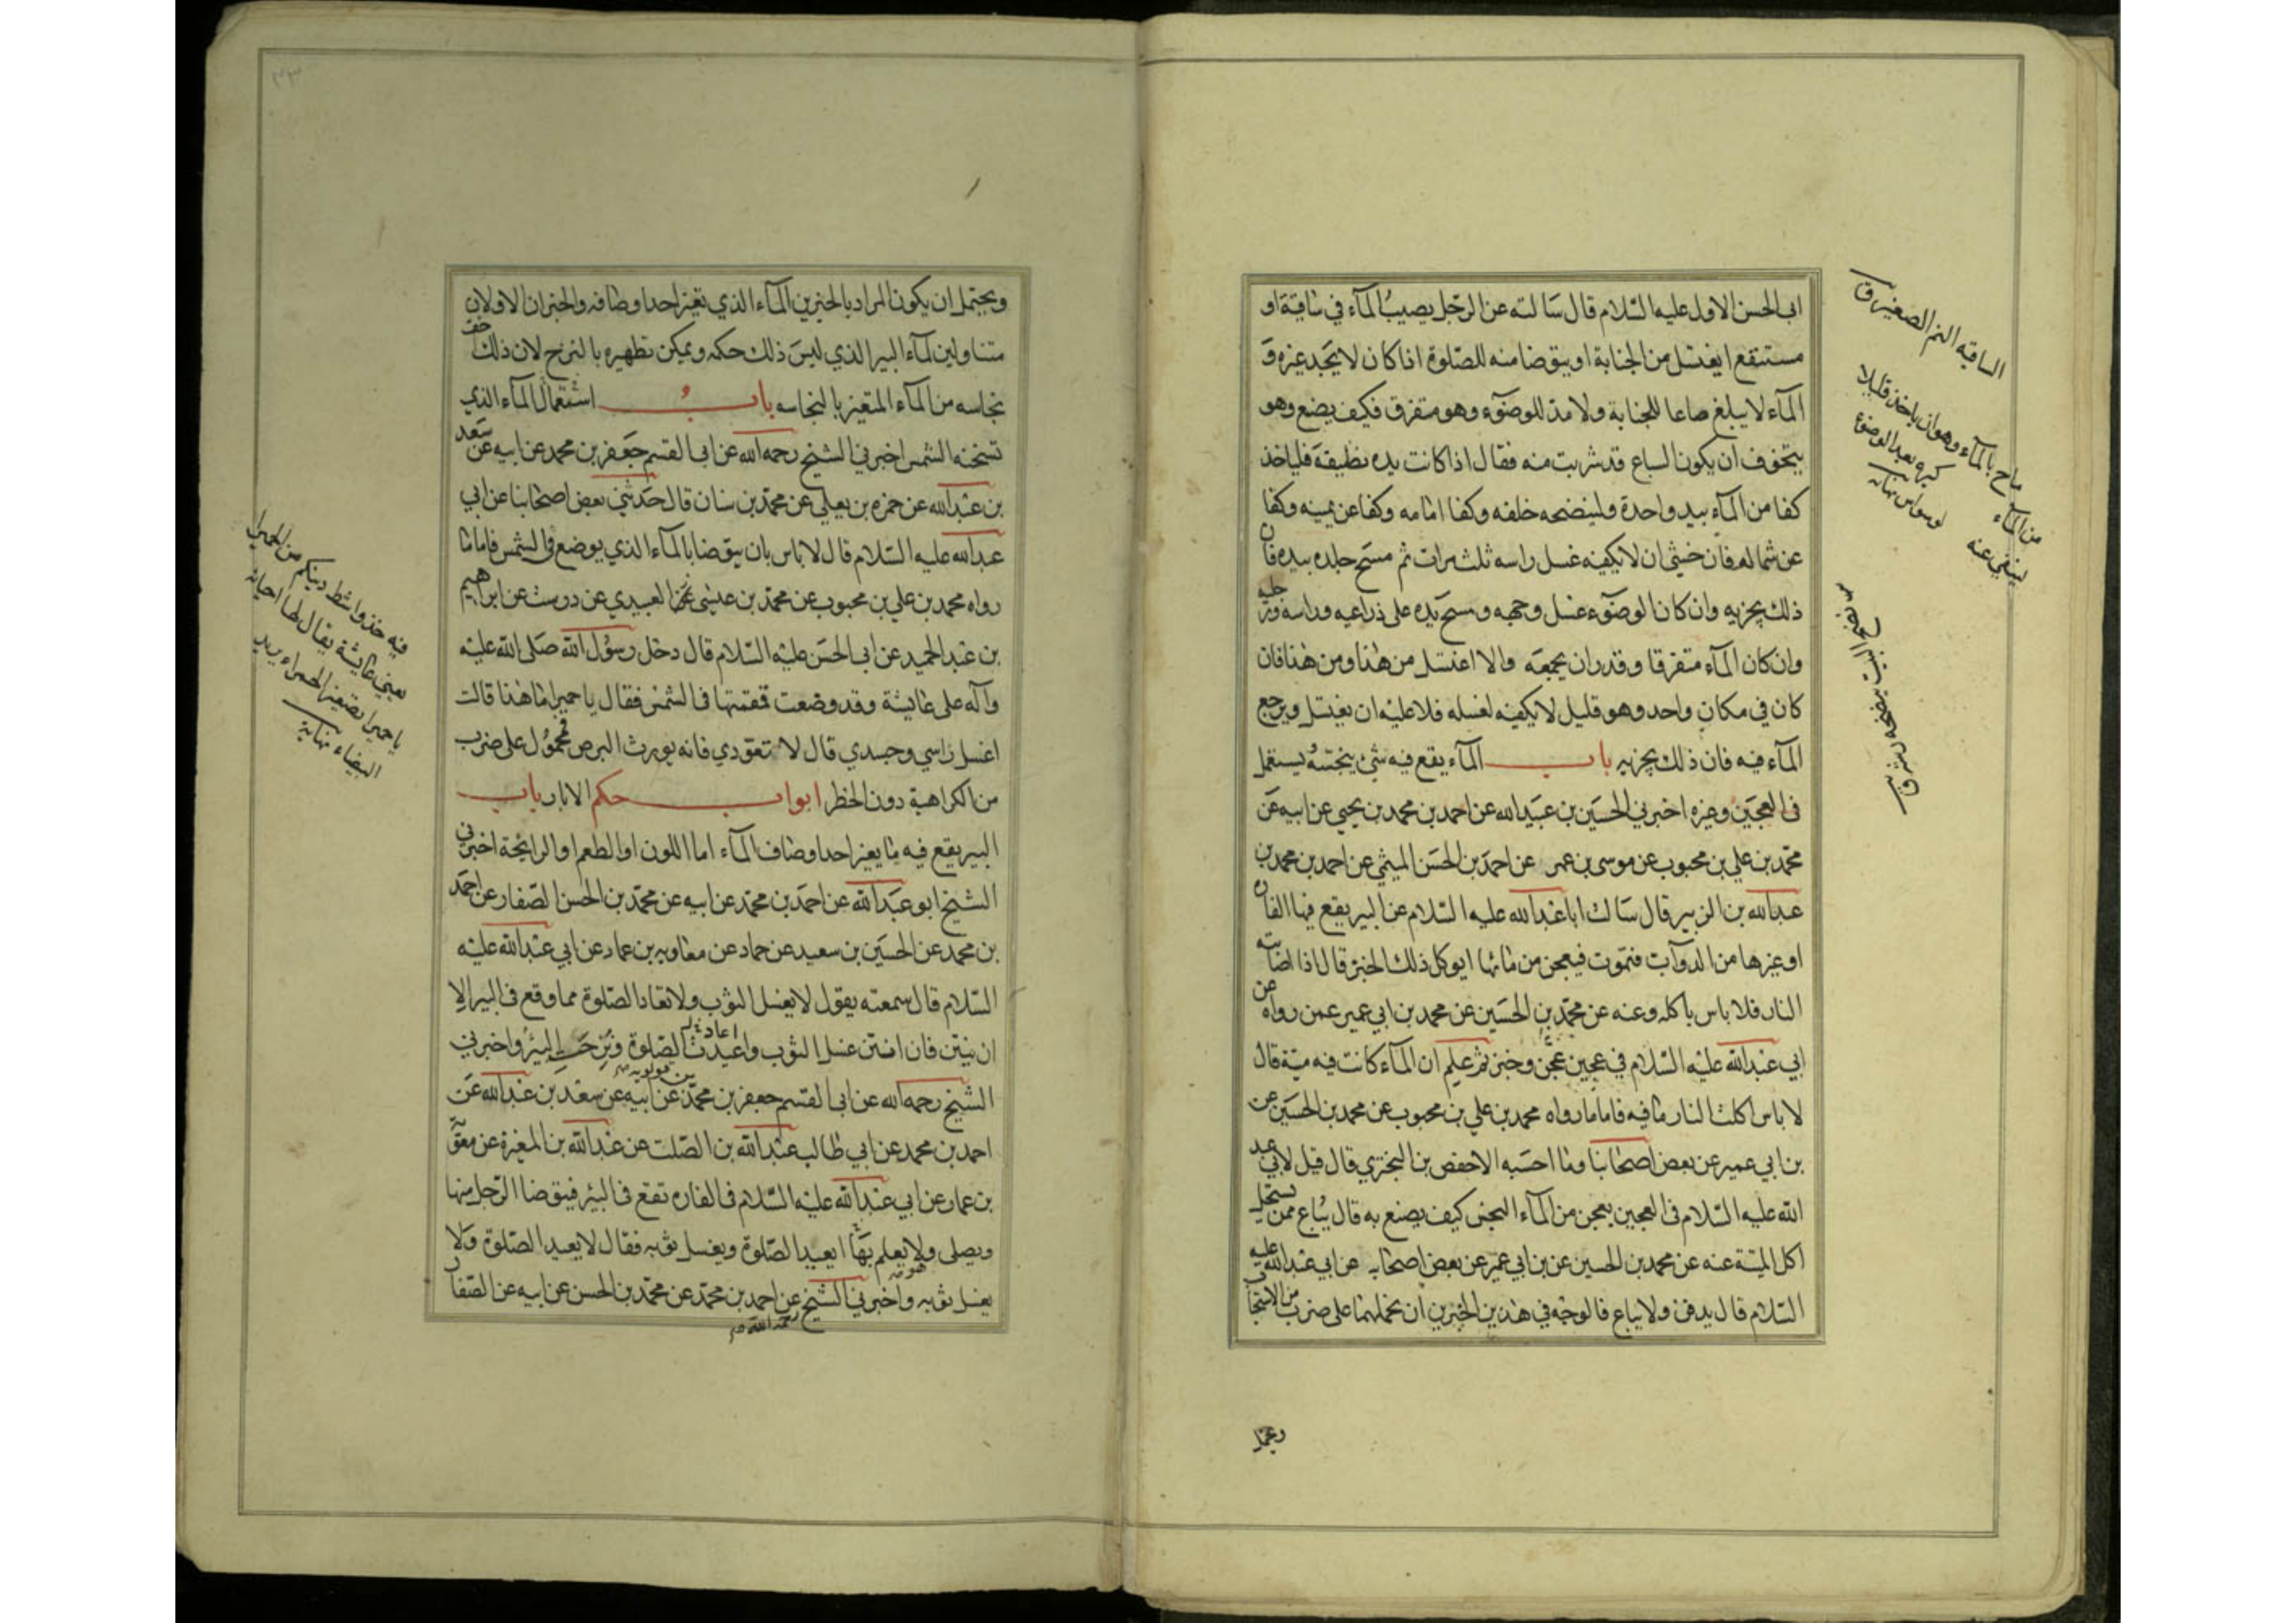 ابي الحسن الاول عليه السلام قال سالته عن الرجل يصيب المآء في ساقية او
مستنقع ايغتسل من الجنابة او يتوضا منه للصلوة اذا كان لا يجد غيره و
المآء لا يبلغ صاعا للجنابة ولا مدا للوضوء وهو متفرق فكيف يضع وهو
يتخوف ان يكون السباع قد شربت منه فقال اذا كانت يده نظيفة فلياخذ
كفا من المآء بيد واحدة ولينضحه خلفه وكفا امامه وكفا عن يمينه وكفا
عن شماله فان خشي ان لا يكفيه غسل راسه ثلث مرات ثم مسح جلده بيده فان
ذلك يجزيه وان كان الوضوء غسل وجهه ومسح يده على ذراعيه وراسه ورجليه
وان كان المآء متفرقا وقدر ان يجمعه والا اغتسل من هنا ومن هنا فان
كان في مكان واحد وهو قليل لا يكفيه لغسله فلا عليه ان يغتسل ويرجع
المآء فيه فان ذلك يجزيه باب المآء يقع فيه شئ ينجسه يستعمل
في العجين وغيره اخبرني الحسين بن عبيد الله عن احمد بن محمد بن يحيى عن ابيه عن
محمد بن علي بن محبوب عن موسى بن عمر عن احمد بن الحسن الميثمي عن احمد بن محمد بن
عبد الله بن الزبير قال سالت ابا عبد الله عليه السلام عن البير يقع فيها الفارة
او غيرها من الدوآب فتموت فيعجن من مائها ايوكل ذلك الخبز قال اذا اصابته
النار فلا باس باكله وعنه عن محمد بن الحسين عن محمد بن ابي عمير عمن رواه عن
ابي عبد الله عليه السلام في عجين عجن وخبز ثم علم ان المآء كانت فيه ميتة قال
لا باس اكلت النار ما فيه فاما ما رواه محمد بن علي بن محبوب عن محمد بن الحسين عن
بن ابي عمير عن بعض اصحابنا وما احسبه الا حفص بن البختري قال قيل لابي عبد
الله عليه السلام في العجين يعجن من المآء النجس كيف يصنع به قال يباع ممن يستحل
اكل الميتة عنه عن محمد بن الحسين عن بن ابي عمير عن بعض اصحابه عن ابي عبد الله عليه
السلام قال يدفن ولا يباع فالوجه في هذين الخبرين ان نحملهما على ضرب من الاستحباب
الساقيه النهر الصغير ق
ماح بالمآء وهو ان ياخذ قليلا
من المآء
نضح البيت ينضحه رشه ق
ويحتمل ان يكون المراد بالخبرين المآء الذي تغير احد اوصافه والخبران الاولان
متناولين لمآء البير الذي ليس ذلك حكمه ويمكن تطهيره بالنزح لان ذلك اخف
نجاسه من المآء المتغير بالنجاسه باب استعمال المآء الذي
تسخنه الشمس اخبرني الشيخ رحمه الله عن ابي القسم جعفر بن محمد عن ابيه عن سعد
بن عبد الله عن حمزه بن يعلي عن محمد بن سنان قال حدثني بعض اصحابنا عن ابي
عبد الله عليه السلام قال لا باس بان يتوضا بالمآء الذي يوضع في الشمس فاما ما
رواه محمد بن علي بن محبوب عن محمد بن عيسى العبيدي عن درست عن ابراهيم
بن عبد الحميد عن ابي الحسن عليه السلام قال دخل رسول الله صلى الله عليه
وآله على عايشة وقد وضعت قمقمتها في الشمس فقال يا حميرا ما هذا قالت
اغسل راسي وجسدي قال لا تعودي فانه يورث البرص فمحمول على ضرب
من الكراهية دون الحظر ابواب حكم الابار باب
البير يقع فيه ما يغير احد اوصاف المآء اما اللون او الطعم او الرايحة اخبرني
الشيخ ابو عبد الله عن احمد بن محمد عن ابيه عن محمد بن الحسن الصفار عن احمد
بن محمد عن الحسين بن سعيد عن حماد عن معاويه بن عمار عن ابي عبد الله عليه
السلام قال سمعته يقول لا يغسل الثوب ولا تعاد الصلوة مما وقع في البير الا
ان ينتن فان انتن غسل الثوب واعيدت الصلوة ونزحت البئر واخبرني
الشيخ رحمه الله عن ابي القسم جعفر بن محمد بن قولويه عن ابيه عن سعد بن عبد الله عن
احمد بن محمد عن ابي طالب عبد الله بن الصلت عن عبد الله بن المغيرة عن معوية
بن عمار عن ابي عبد الله عليه السلام في الفاره تقع في البئر فيتوضا الرجل منها
ويصلي ولا يعلم بها ايعيد الصلوة ويغسل ثوبه فقال لا يعيد الصلوة ولا
يغسل ثوبه واخبرني الشيخ رحمه الله عن احمد بن محمد عن محمد بن الحسن عن ابيه عن الصفار
فيه خذوا شطر دينكم من الحميرا
يعني عايشة يقال لها احيانا
يا حميرا تصغير الحمراء يريد
البيضاء نهاية